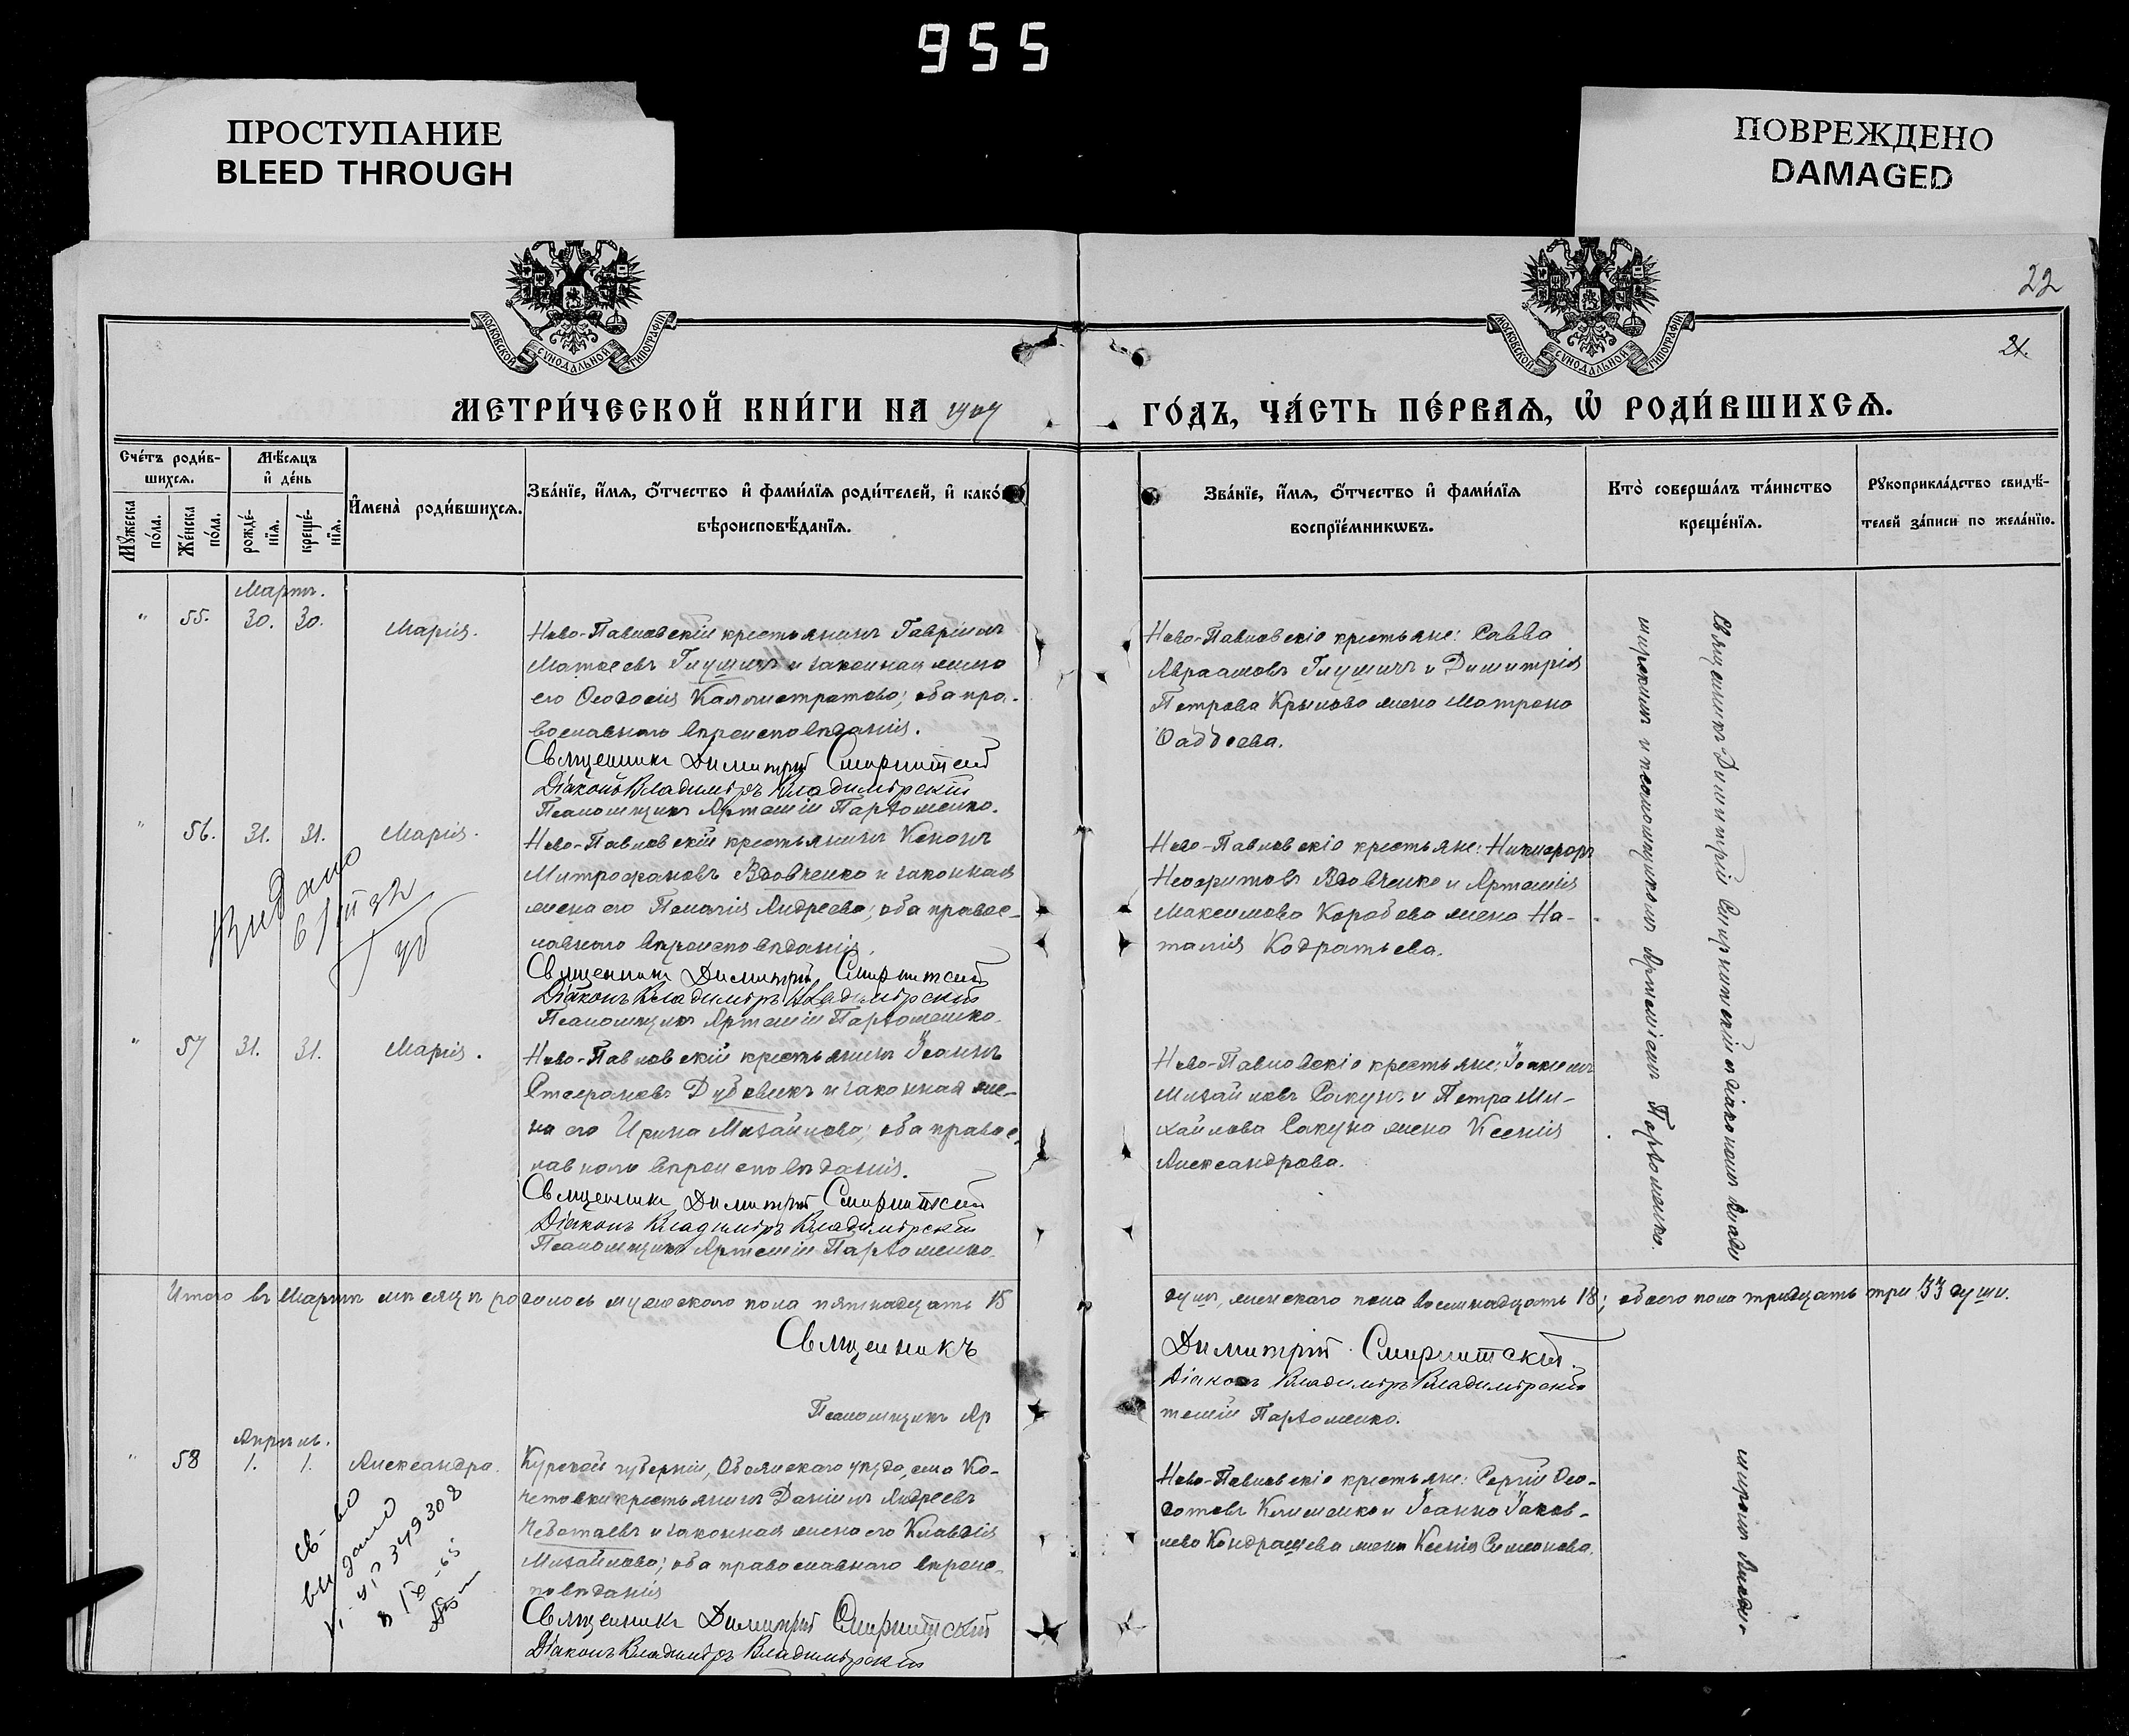 955
ПРОСТУПАНИЕ
BLEED THROUGH
ПОВРЕЖДЕНО
DAMAGED
МОСКОВСКОЙ СѴНОДАЛЬНОЙ ТИПОГРАФІИ
МОСКОВСКОЙ СѴНОДАЛЬНОЙ ТИПОГРАФІИ
22
21.
МЕТРИ́ЧЕСКОЙ КНИ́ГИ НА 1907
ГО́ДЪ, ЧА́СТЬ ПЕ́РВАѦ, Ѡ҆ РОДИ́ВШИХСѦ.
Сче́тъ роди́в-
шихсѧ.
Мꙋ́жеска по́ла.
Же́нска по́ла.
Мѣ́сяцъ
и҆ де́нь
рожде́-
нїѧ.
креще́-
нїѧ.
И҆мена̀ роди́вшихсѧ.
Зва́нїе, и҆́мѧ, ѻ҆́тчество и҆ фами́лїѧ роди́телей, и҆ како́
вѣроисповѣ́данїѧ.
Зва́нїе, и҆́мѧ, ѻ҆́тчество и҆ фами́лїѧ
воспрїе́мникѡвъ.
Кто̀ соверша́лъ та́инство
креще́нїѧ.
Рꙋкоприкла́дство свидѣ́-
телей за́писи по жела́нїю.
Мартъ.
" 55. 30. 30. Марія.
Ново-Павловскій крестьянинъ Гавріилъ
Матѳеевъ Глушичъ и законная жена
его Ѳеодосія Каллистратова; оба пра-
вославнаго вѣроисповѣданія.
Священникъ Димитрій Смирнитскій
Діаконъ Владиміръ Владимірскій
Псаломщикъ Артемій Пархоменко.
Ново-Павловскіе крестьяне: Савва
Авраамовъ Глушичъ и Димитрія
Петрова Крылова жена Матрона
Ѳаддеева.
" 56. 31. 31. Марія.
Ново-Павловскій крестьянинъ Ксенонъ
Митрофановъ Вдовченко и законная
жена его Пелагія Андреева; оба правос-
лавнаго вѣроисповѣданія.
Священникъ Димитрій Смирнитскій
Діаконъ Владиміръ Владимірскій
Псаломщикъ Артемій Пархоменко.
Ново-Павловскіе крестьяне: Никифоръ
Неофитовъ Вдовченко и Артемія
Максимова Коробова жена На-
талія Кодратьева.
Видано
6/III 32
" 57 31. 31. Марія.
Ново-Павловскій крестьянинъ Іоаннъ
Стефановъ Дубовикъ и законная же-
на его Ирина Михайлова; оба правос-
лавнаго вѣроисповѣданія.
Священникъ Димитрій Смирнитскій
Діаконъ Владиміръ Владимірскій
Псаломщикъ Артемій Пархоменко.
Ново-Павловскіе крестьяне: Іоакимъ
Михайловъ Сакунъ и Петра Ми-
хайлова Сакуна жена Ксенія
Александрова.
Священникъ Димитрій Смирнитскій съ діакономъ Влади
мірскимъ и псаломщикомъ Артеміемъ Пархоменко.
Итого въ Мартѣ мѣсяцѣ родилось мужеского пола пятнадцать 15
душъ, женскаго пола восемнадцать 18; обоего пола тридцать три 33 души.
Священникъ
Димитрій Смирнитскій.
Діаконъ Владиміръ Владимірскій
Псаломщикъ Ар
темій Пархоменко.
Апрѣль.
" 58 1. 1. Александра.
Курской губерніи, Обоянскаго уѣзда, села Ко-
четовки крестьянинъ Даніилъ Андреевъ
Чеботаевъ и законная жена его Клавдія
Михайлова; оба православнаго вѣроис-
повѣданія
Священникъ Димитрій Смирнитскій
Діаконъ Владиміръ Владимірскій
Ново-Павловскіе крестьяне: Сергій Ѳео-
дотовъ Клименко и Іоанна Іаков-
лева Кондрашева жена Ксенія Симонова.
св-во
выдано
349308